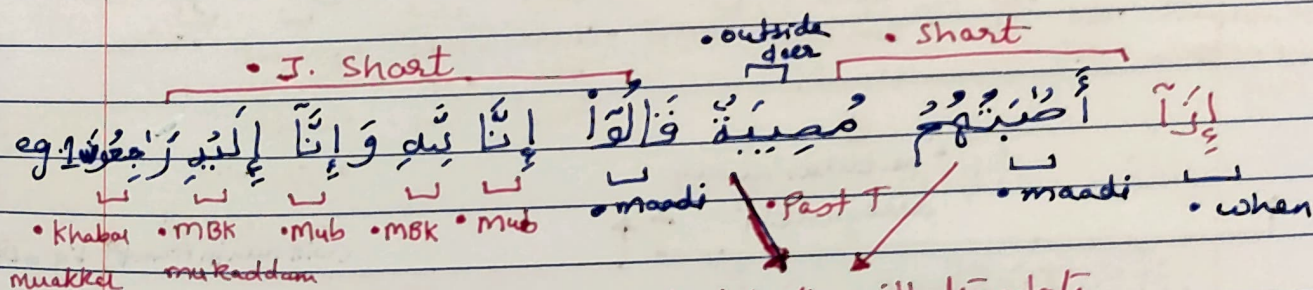 • outside doer
• J. Short • Short
eg.1 إِذَآ أَصَٰبَتْهُم مُّصِيبَةٌ قَالُوٓا۟ إِنَّا لِلَّهِ وَإِنَّآ إِلَيْهِ رَٰجِعُونَ
• Khabar • MBK • Mub • MBK • Mub • maadi • Past T • maadi • when
muakkal mukaddam